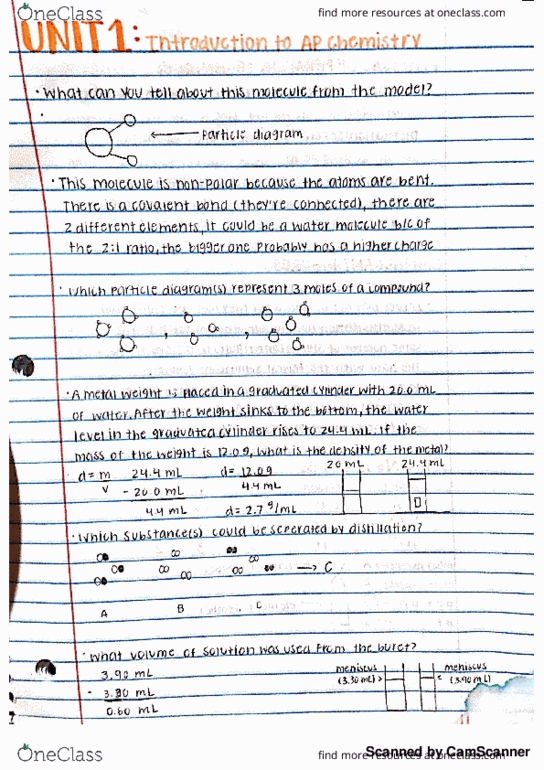 OneClass
find more resources at oneclass.com
UNIT 1: Introduction to AP Chemistry
• What can you tell about this molecule from the model?
Particle diagram
• This molecule is non-polar because the atoms are bent.
There is a covalent bond (they're connected), there are
2 different elements, it could be a water molecule b/c of
the 2:1 ratio, the bigger one probably has a higher charge
• Which particle diagram(s) represent 3 moles of a compound?
• A metal weight is placed in a graduated cylinder with 20.0 mL
of water. After the weight sinks to the bottom, the water
level in the graduated cylinder rises to 24.4 mL. If the
mass of the weight is 12.0g, what is the density of the metal?
d= m 24.4 mL d= 12.0g 20 mL 24.4 mL
V - 20.0 mL 4.4 mL
4.4 mL d= 2.7 g/mL
• Which substance(s) could be seperated by distillation?
→ C
A B C
• What volume of solution was used from the buret?
3.90 mL meniscus meniscus
- 3.30 mL (3.30 mL) > < (3.90 mL)
0.60 mL
OneClass
find more resources at oneclass.com
Scanned by CamScanner